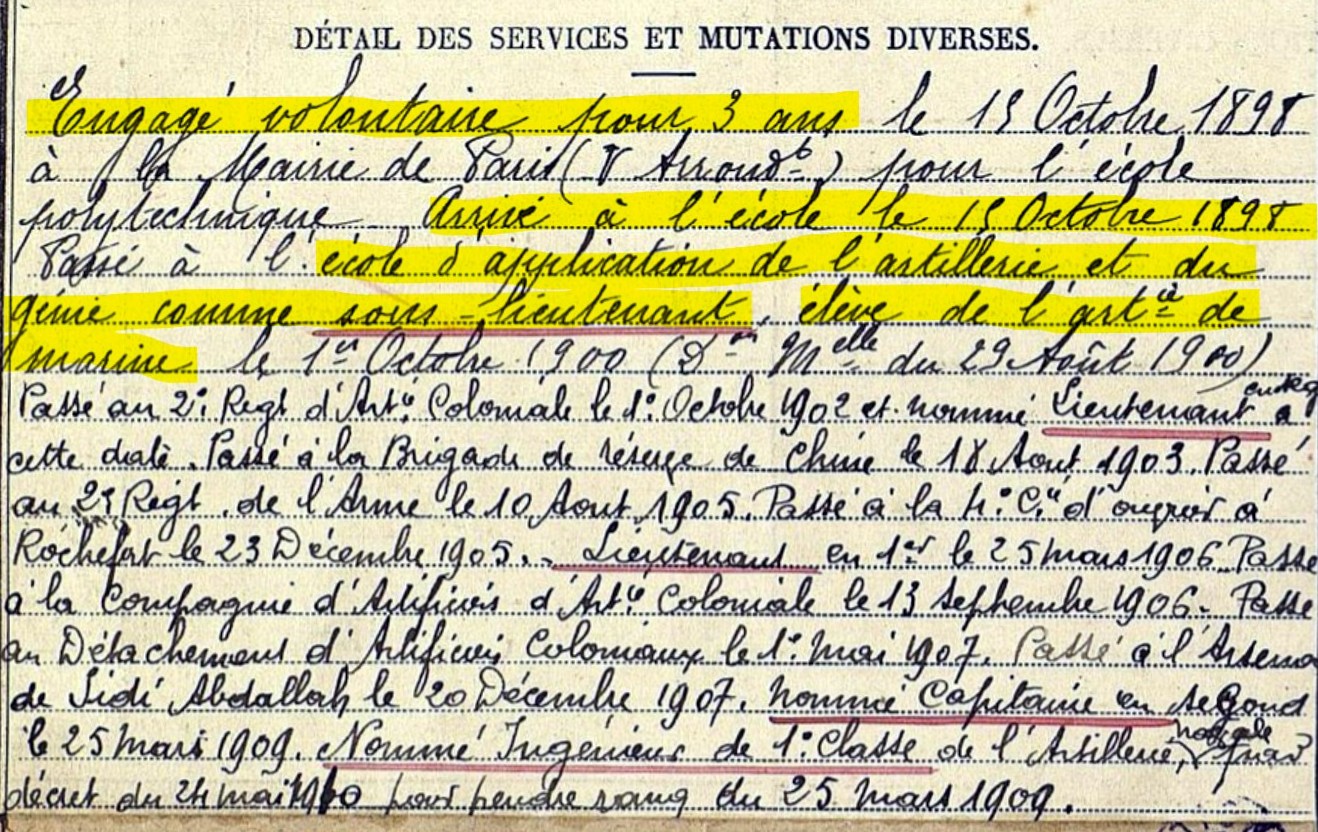 DÉTAIL DES SERVICES ET MUTATIONS DIVERSES.
Engagé volontaire pour 3 ans le 15 Octobre 1898
à la Mairie de Paris (V Arrondt) pour l'école
polytechnique. Arrivé à l'école le 15 Octobre 1898
Passé à l'école d'application de l'artillerie et du
génie comme sous-lieutenant, élève de l'artie de
marine le 1er Octobre 1900 (Don Melle du 29 Août 1900)
Passé au 2e Regt d'Artie Coloniale le 1e Octobre 1902 et nommé Lieutenant en 2d à
cette date. Passé à la Brigade de réserve de Chine le 18 Aout 1903. Passé
au Regt. de l'Arme le 10 Aout 1905. Passé à la 4e Cie d'ouvrier à
Rochefort le 23 Décembre 1905. Lieutenant en 1er le 25 mars 1906. Passé
à la Compagnie d'Artificiers d'Artie Coloniale le 13 Septembre 1906. Passé
au Détachement d'Artificiers Coloniaux le 1e Mai 1907. Passé à l'Arsena
de Sidi Abdallah le 20 Décembre 1907. Nommé Capitaine en second
le 25 Mars 1909. Nommé Ingénieur de 1e Classe de l'Artillerie navale, par
décret du 24 mai 1910 pour prendre rang du 25 Mars 1909.